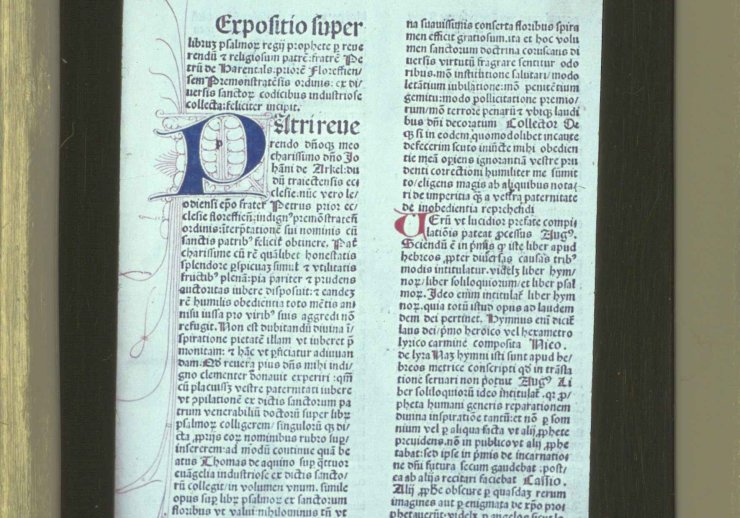 Expositio super
libruꝫ psalmoꝝ regij prophete ꝑ reue
rendū ⁊ religiosum patrē: fratrē Pe
trū de Harentals: priorē Floreffien
sem Premonstratēsis ordinis: ex di
uersis sanctoꝝ codicibus industriose
collecta: feliciter incipit.
PAtri reue
rendo dn̄oqꝫ meo
charissimo dn̄o Jo
hāni de Arkel: du
dū traiectensis ec
clesie. nūc vero le
odiensi ep̄o frater Petrus prior ec
clesie floreffien̄. indignꝰ premōstratēn̄
ordinis: īterpͣtatione sui nominis cū
sanctis patribꝰ feliciē obtinere. Pat̄
charissime cū rē quālibet honestatis
splendore ꝑspicuaꝫ simul ⁊ vtilitatis
fructibꝰ plenā: pia pariter ⁊ prudens
auctoritas iubere disposuit: ⁊ eandeꝫ
rē humilis obedientia toto mētis an
nisu iussa pro viribꝰ suis aggredi nō
refugit. Non est dubitandū diuina ī
spiratione pietatē illam vt iuberet p̄
monitam: ⁊ hāc vt ꝑficiatur adiuuan
dam. Qd̄ reuera pius dn̄s mihi indi
gno clementer donauit experiri: qm̄
cū placuisꝫ vestre paternitati iubere
vt ꝯpilationē ex dictis sanctorum pa
trum venerabiliū doctoꝝ super libꝝ
psalmoꝝ colligerem/ singuloꝝ qꝫ di
cta ꝓprijs eoꝝ nominibus rubro sup̄
insererem: ad modū continue quā be
atus Thomas de aquino sup̄ q̄ttuor
euāgelia industriose ex dictis sancto/
rū collegit/ in volumen vnum. simile
opus sup̄ libꝝ psalmoꝝ ex sanctorum
floribus vt valui nihilominus tn̄ vt
na suauissimis conserta floribus spira
men efficit gratiosum. ita et hoc volu
men sanctorum doctrina coruscans di
uersis virtutū fragrare sentitur odo
ribus. mō institutione salutari/ modo
letātium iubilatione: mō penitētium
gemitu: modo pollicitatione premio/
rum/ mō terrore penarū ⁊ vbiqꝫ laudi
bus diī decoratum Collector De
qꝫ si in eodem. quomodolibet incaute
defecerim scuto iniūcte mihi obedien
tie meā opiens ignorantiā vestre pru
denti correctioni humiliter me sumit
to/ eligens magis ab aliquibus nota/
ri de imperitia qꝫ a vestra paternitate
de inobedientia reprehēdi
UErū vt lucidior prefate compi
lationis pateat ꝓcessus Augꝰ.
Sciendū ē in pͥmis qꝫ iste liber apud
hebreos ꝓpter diuersas causas tribꝰ
modis intitulatur. videlꝫ liber hym/
noꝝ/ liber soliloquiorum/ et liber psal
moꝝ. Ideo enim intitulat̄ liber hym
noꝝ. quia totū istud opus ad laudem
dem dei pertinet. Hymnus enī dicit̄
laus dei/ pͥmo heroico vel hexametro
lyrico carmine composita Nico.
de lyra Naꝫ hymni isti sunt apud he/
breos metrice conscripti qd̄ in trāsla
tione seruari non potuit Augꝰ. Li
ber soliloquiorū ideo intitulat̄. qꝛ ꝓ/
pheta humani generis reparationem
diuina inspiratione tantū: et nō ꝑ som
nium vel ꝑ aliqua facta vt alij ꝓphete
preuidens. nō in publico vt alij ꝓphe
tabat: sed ipse in pͥmis de incarnatio/
ne dn̄i futura secum gaudebat: post/
ea ab alijs recitari faciebat Cassio.
Alij ꝓphe obscure ꝑ quasdaꝫ rerum
imagines aut ꝑ enigmata de xp̄o pro/